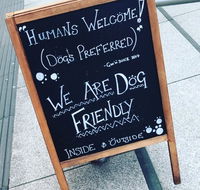 "HUMANS WELCOME!
(DOGS PREFERRED)"
WE ARE DOG
FRIENDLY
INSIDE & OUTSIDE